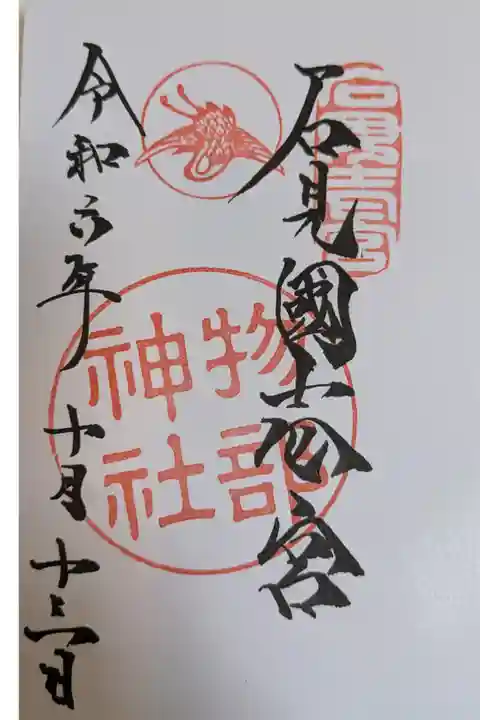 石見國一宮
物部
神社
令和六年 十月 十三日